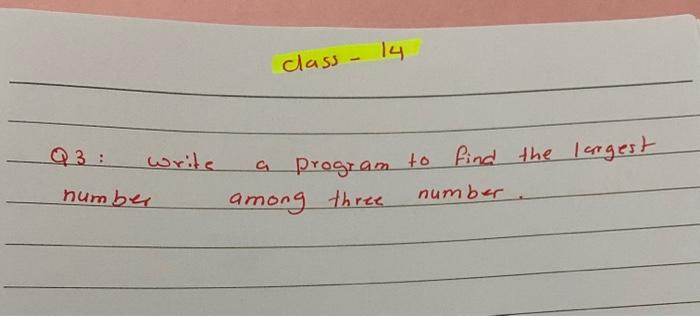 class - 14
Q3: write a program to find the largest
number among three number.